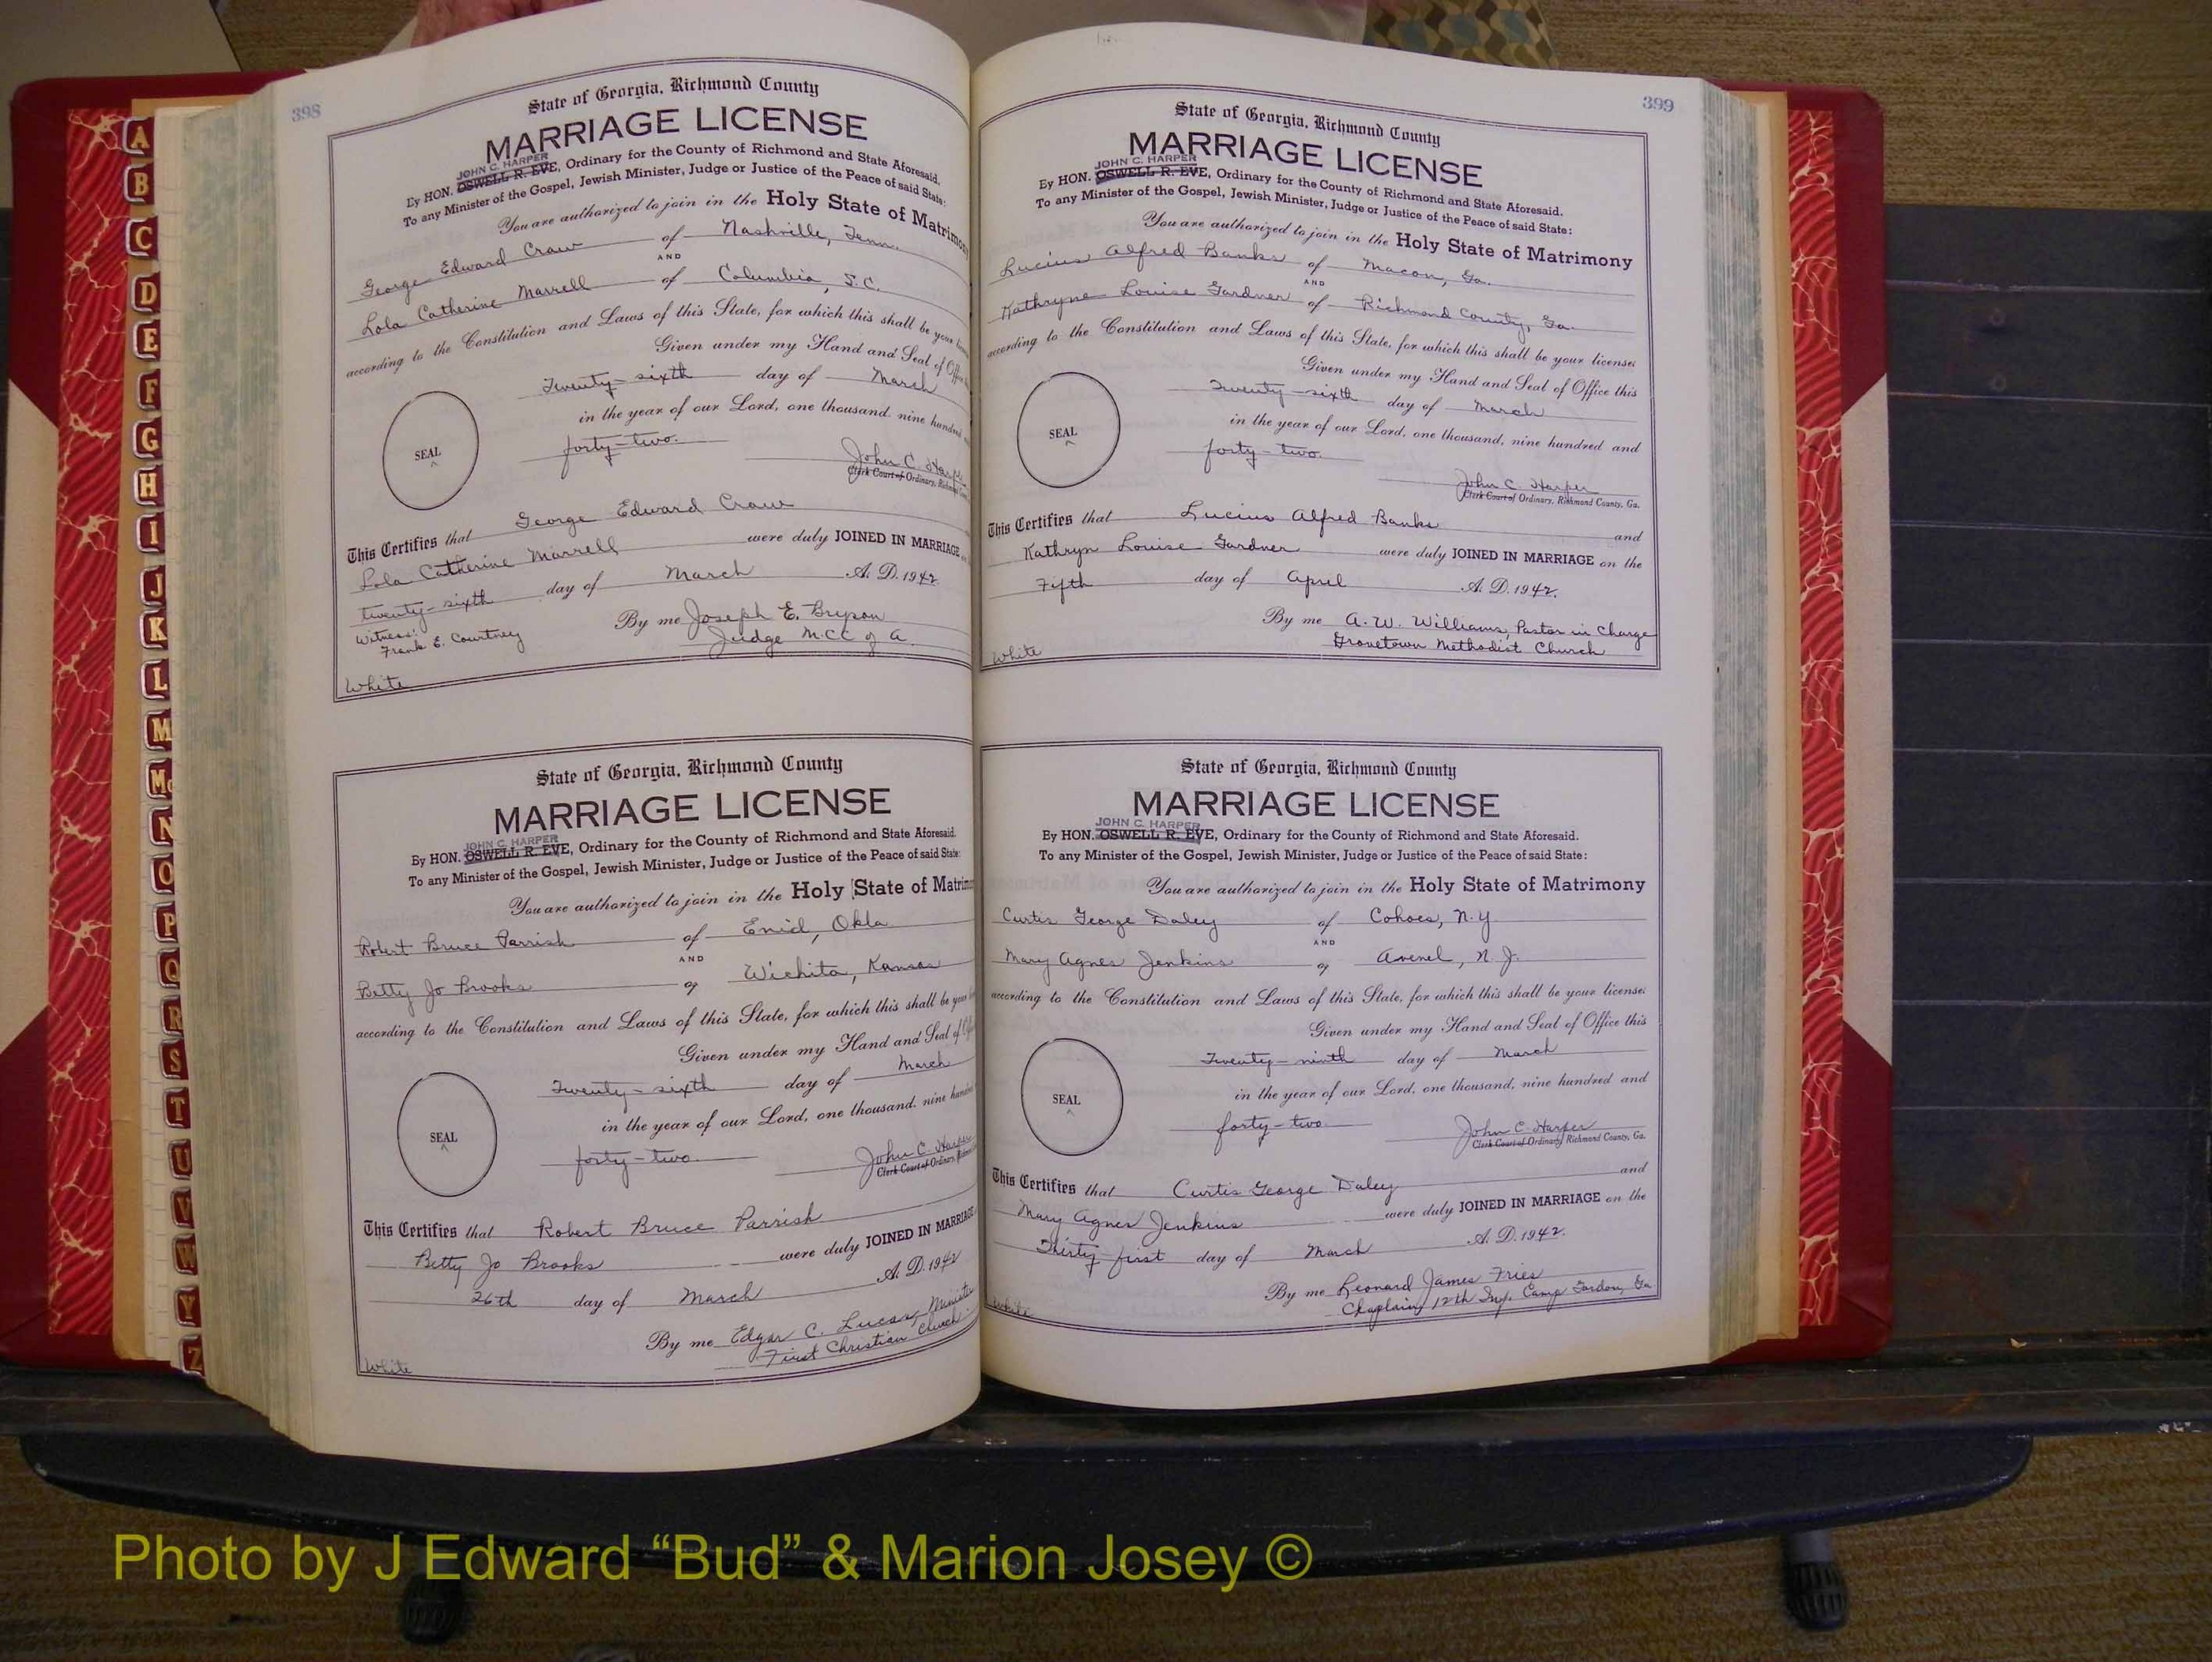 398
State of Georgia, Richmond County
MARRIAGE LICENSE
JOHN C. HARPER
By HON. OSWELL R. EVE, Ordinary for the County of Richmond and State Aforesaid.
To any Minister of the Gospel, Jewish Minister, Judge or Justice of the Peace of said State:
You are authorized to join in the Holy State of Matrimony
George Edward Craw of Nashville, Tenn.
AND
Lola Catherine Marrell of Columbia, S.C.
according to the Constitution and Laws of this State, for which this shall be your
Given under my Hand and Seal of
Twenty-sixth day of March
in the year of our Lord, one thousand, nine hundred
forty-two.
SEAL
John C. Harper
Clerk Court of Ordinary,
This Certifies that George Edward Craw
Lola Catherine Marrell were duly JOINED IN MARRIAGE
twenty-sixth day of March A. D. 1942
Witness:
Frank E. Courtney
By me Joseph E. Bryson
Judge M.C.C of A.
White
State of Georgia, Richmond County
MARRIAGE LICENSE
JOHN C. HARPER
By HON. OSWELL R. EVE, Ordinary for the County of Richmond and State Aforesaid.
To any Minister of the Gospel, Jewish Minister, Judge or Justice of the Peace of said State:
You are authorized to join in the Holy State of
Robert Bruce Parrish of Enid, Okla
AND
Betty Jo Brooks of Wichita, Kansas
according to the Constitution and Laws of this State, for which this shall be your
Given under my Hand and Seal of
Twenty-sixth day of March
in the year of our Lord, one thousand, nine hundred
forty-two.
SEAL
John C. Harper
Clerk Court of Ordinary,
This Certifies that Robert Bruce Parrish
Betty Jo Brooks were duly JOINED IN MARRIAGE
26th day of March A. D. 1942
By me Edgar C. Lucas, Minister
First Christian Church
White
399
State of Georgia, Richmond County
MARRIAGE LICENSE
JOHN C. HARPER
By HON. OSWELL R. EVE, Ordinary for the County of Richmond and State Aforesaid.
To any Minister of the Gospel, Jewish Minister, Judge or Justice of the Peace of said State:
You are authorized to join in the Holy State of Matrimony
Lucius Alfred Banks of Macon, Ga.
AND
Kathryne Louise Gardner of Richmond County, Ga.
according to the Constitution and Laws of this State, for which this shall be your license:
Given under my Hand and Seal of Office this
Twenty-sixth day of March
in the year of our Lord, one thousand, nine hundred and
forty-two.
SEAL
John C. Harper
Clerk Court of Ordinary, Richmond County, Ga.
This Certifies that Lucius Alfred Banks and
Kathryn Louise Gardner were duly JOINED IN MARRIAGE on the
Fifth day of April A. D. 1942.
By me A. W. Williams, Pastor in Charge
Grovetown Methodist Church
White
State of Georgia, Richmond County
MARRIAGE LICENSE
JOHN C. HARPER
By HON. OSWELL R. EVE, Ordinary for the County of Richmond and State Aforesaid.
To any Minister of the Gospel, Jewish Minister, Judge or Justice of the Peace of said State:
You are authorized to join in the Holy State of Matrimony
Curtis George Daley of Cohoes, N.Y.
AND
Mary Agnes Jenkins of Avenel, N. J.
according to the Constitution and Laws of this State, for which this shall be your license:
Given under my Hand and Seal of Office this
Twenty-ninth day of March
in the year of our Lord, one thousand, nine hundred and
forty-two
SEAL
John C. Harper
Clerk Court of Ordinary, Richmond County, Ga.
This Certifies that Curtis George Daley and
Mary Agnes Jenkins were duly JOINED IN MARRIAGE on the
Thirty first day of March A. D. 1942.
By me Leonard James Fries
Chaplain, 12th Inf. Camp Gordon, Ga.
White
A
B
C
D
E
F
G
H
I
J
K
L
M
Mc
N
O
P
Q
R
S
T
U
V
W
Y
Z
Photo by J Edward “Bud” & Marion Josey ©